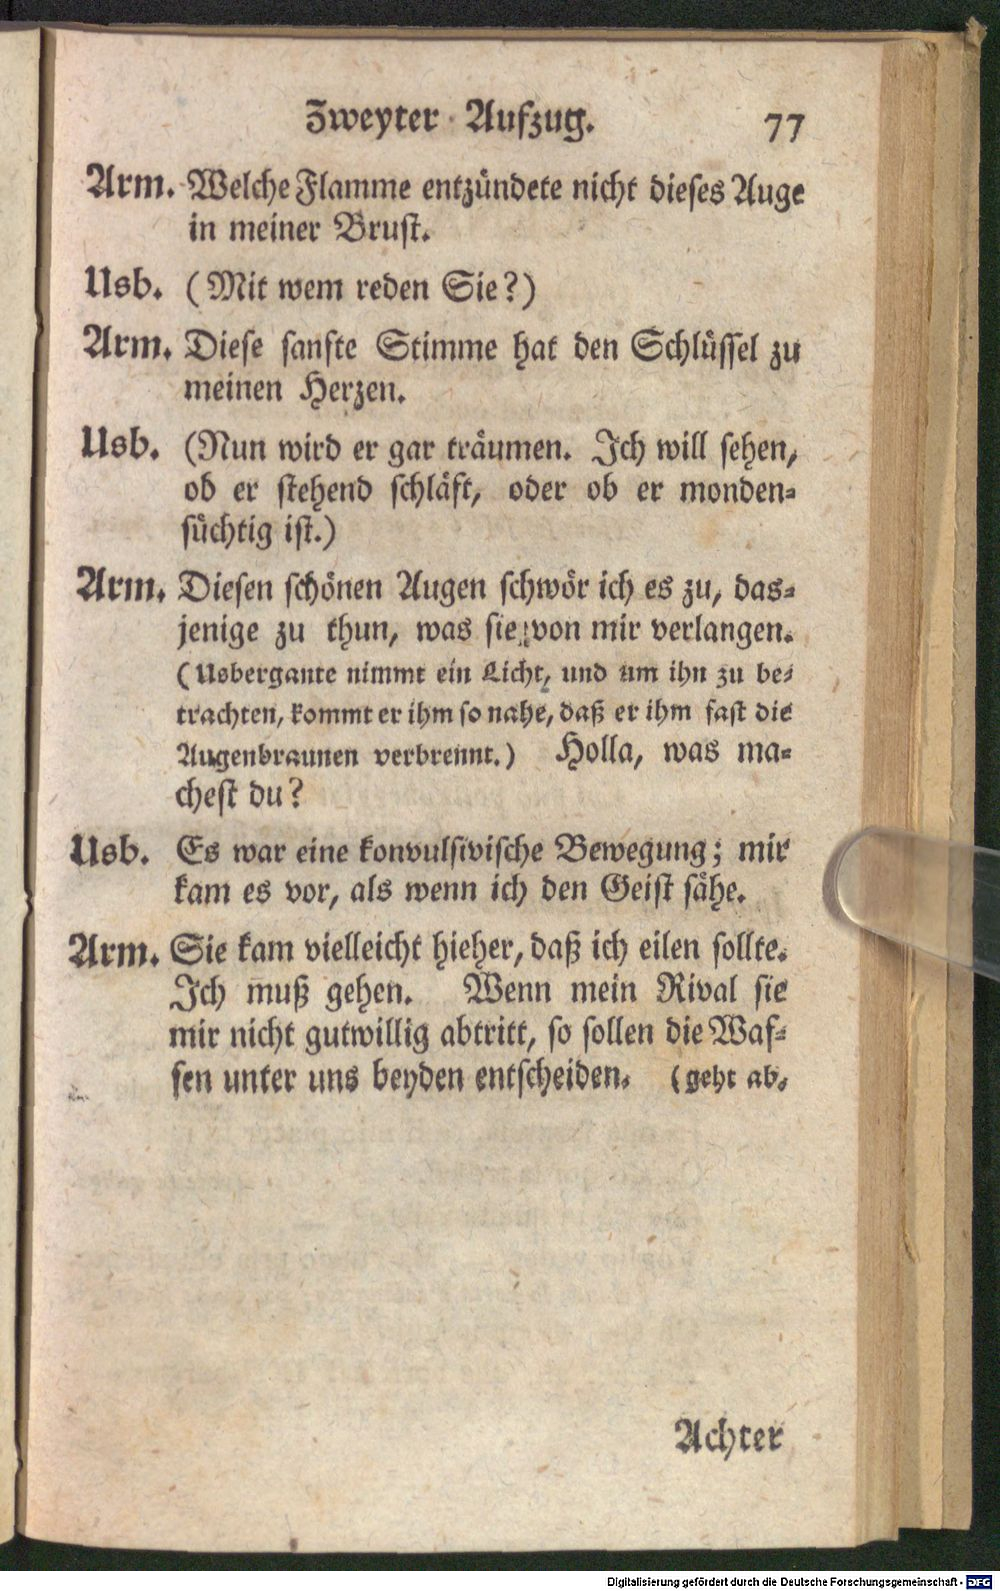 Zweyter Aufzug. 77
Arm. Welche Flamme entzündete nicht dieses Auge
in meiner Brust.
Usb. (Mit wem reden Sie?)
Arm. Diese sanfte Stimme hat den Schlüssel zu
meinen Herzen.
Usb. (Nun wird er gar träumen. Ich will sehen,
ob er stehend schläft, oder ob er monden-
süchtig ist.)
Arm. Diesen schönen Augen schwör ich es zu, das-
jenige zu thun, was sie von mir verlangen.
(Usbergante nimmt ein Licht, und um ihn zu be-
trachten, kommt er ihm so nahe, daß er ihm fast die
Augenbraunen verbrennt.) Holla, was ma-
chest du?
Usb. Es war eine konvulsivische Bewegung; mir
kam es vor, als wenn ich den Geist sähe.
Arm. Sie kam vielleicht hieher, daß ich eilen sollte.
Ich muß gehen. Wenn mein Rival sie
mir nicht gutwillig abtritt, so sollen die Waf-
fen unter uns beyden entscheiden. (geht ab.
Achter
Digitalisierung gefördert durch die Deutsche Forschungsgemeinschaft - DFG